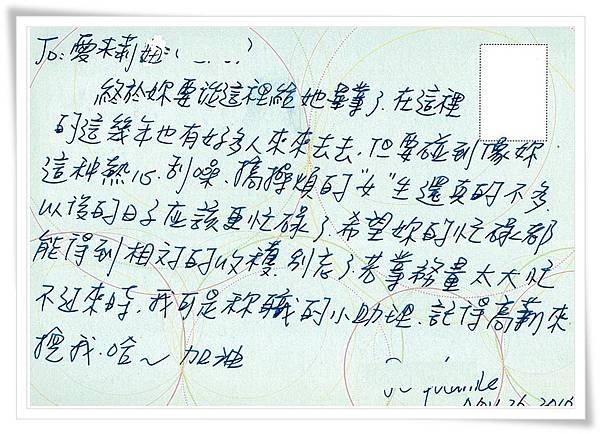 To: 愛米莉妞:( ... )
終於妳要從這裡給她畢業了. 在這裡
的這幾年也有好多人來來去去, 但要碰到像妳
這种熱心. 刮噪. 搞操煩的"女"生還真的不多.
以後的日子應該更忙碌了. 希望妳的忙碌都
能得到相对的收穫. 別忘了若業務量太大忙
不过來時, 我可是稱職的小助理. 記得高薪來
挖我. 哈~ 加油
Nov 26. 2010